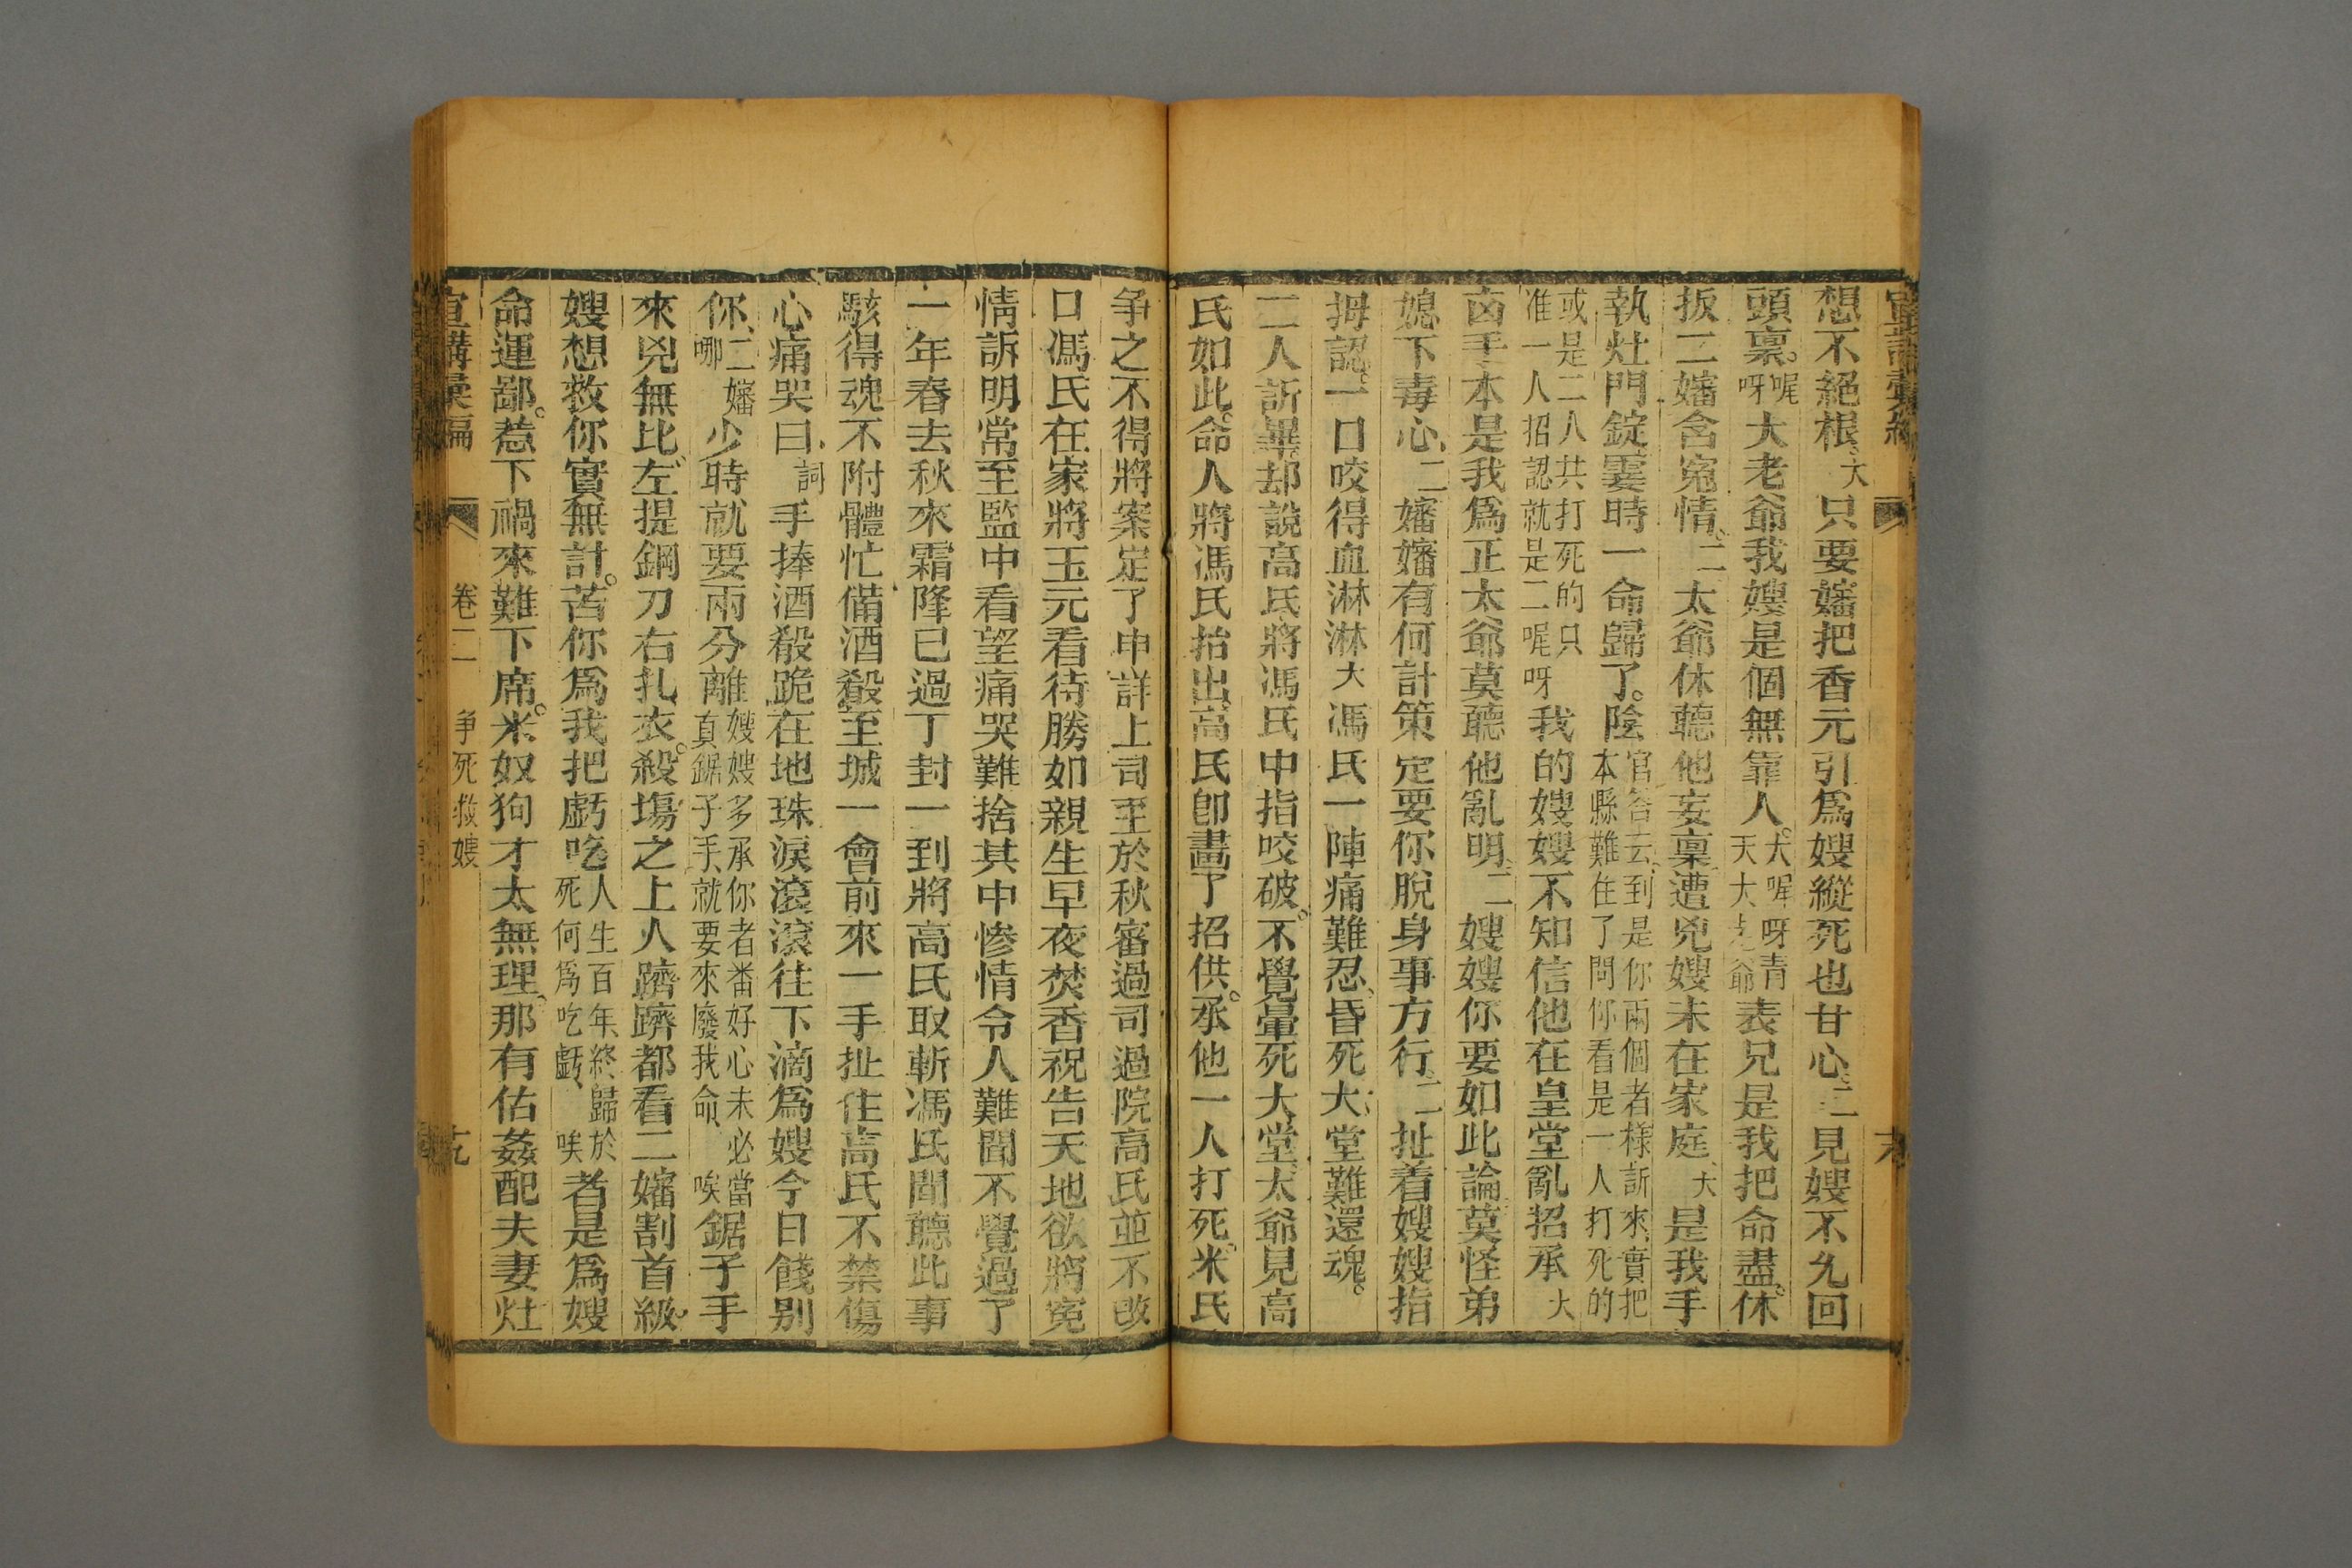 宣講彙編
想不絕根大只要嬸把香元引為嫂縱死也甘心二見嫂不允回
頭稟喔呀大老爺我嫂是個無靠人大喔呀青天大老爺表兄是我把命盡休
扳二嬸含冤情二太爺休聽他妄稟遭兇嫂未在家庭大是我手
執灶門錠霎時一命歸了陰官答云到是你兩個者樣訴來實把本縣難住了問你看是一人打死的
或是二人共打死的只准一人招認就是二喔呀我的嫂嫂不知信他在皇堂亂招承大
卤手本是我為正太爺莫聽他亂明二嫂嫂你要如此論莫怪弟
媳下毒心二嬸嬸有何計策定要你脫身事方行二扯着嫂嫂指
拇認一口咬得血淋淋大馮氏一陣痛難忍昏死大堂難還魂
二人訴畢却說高氏將馮氏中指咬破不覺暈死大堂太爺見高
氏如此命人將馮氏抬出高氏卽畫了招供承他一人打死米氏
爭之不得將案定了申詳上司至於秋審過司過院高氏並不改
口馮氏在家將玉元看待勝如親生早夜焚香祝告天地欲將冤
情訴明常至監中看望痛哭難捨其中慘情令人難聞不覺過了
一年春去秋來霜降已過丁封一到將高氏取斬馮氏聞聽此事
駭得魂不附體忙備酒殽至城一會前來一手扯住高氏不禁傷
心痛哭曰詞手捧酒殽跪在地珠淚滾滾往下滴為嫂今日餞別
你二嬸哪少時就要兩分離嫂嫂多承你者番好心未必當真鋸子手就要來廢我命唉鋸子手
來兇無比左提鋼刀右扎衣殺塲之上人躋躋都看二嬸割首級
嫂想救你實無計苦你為我把虧吃人生百年終歸於死何為吃虧唉者是為嫂
命運鄙惹下禍來難下席米奴狗才太無理那有估姦配夫妻灶
宣講彙編 卷二 爭死救嫂 十九